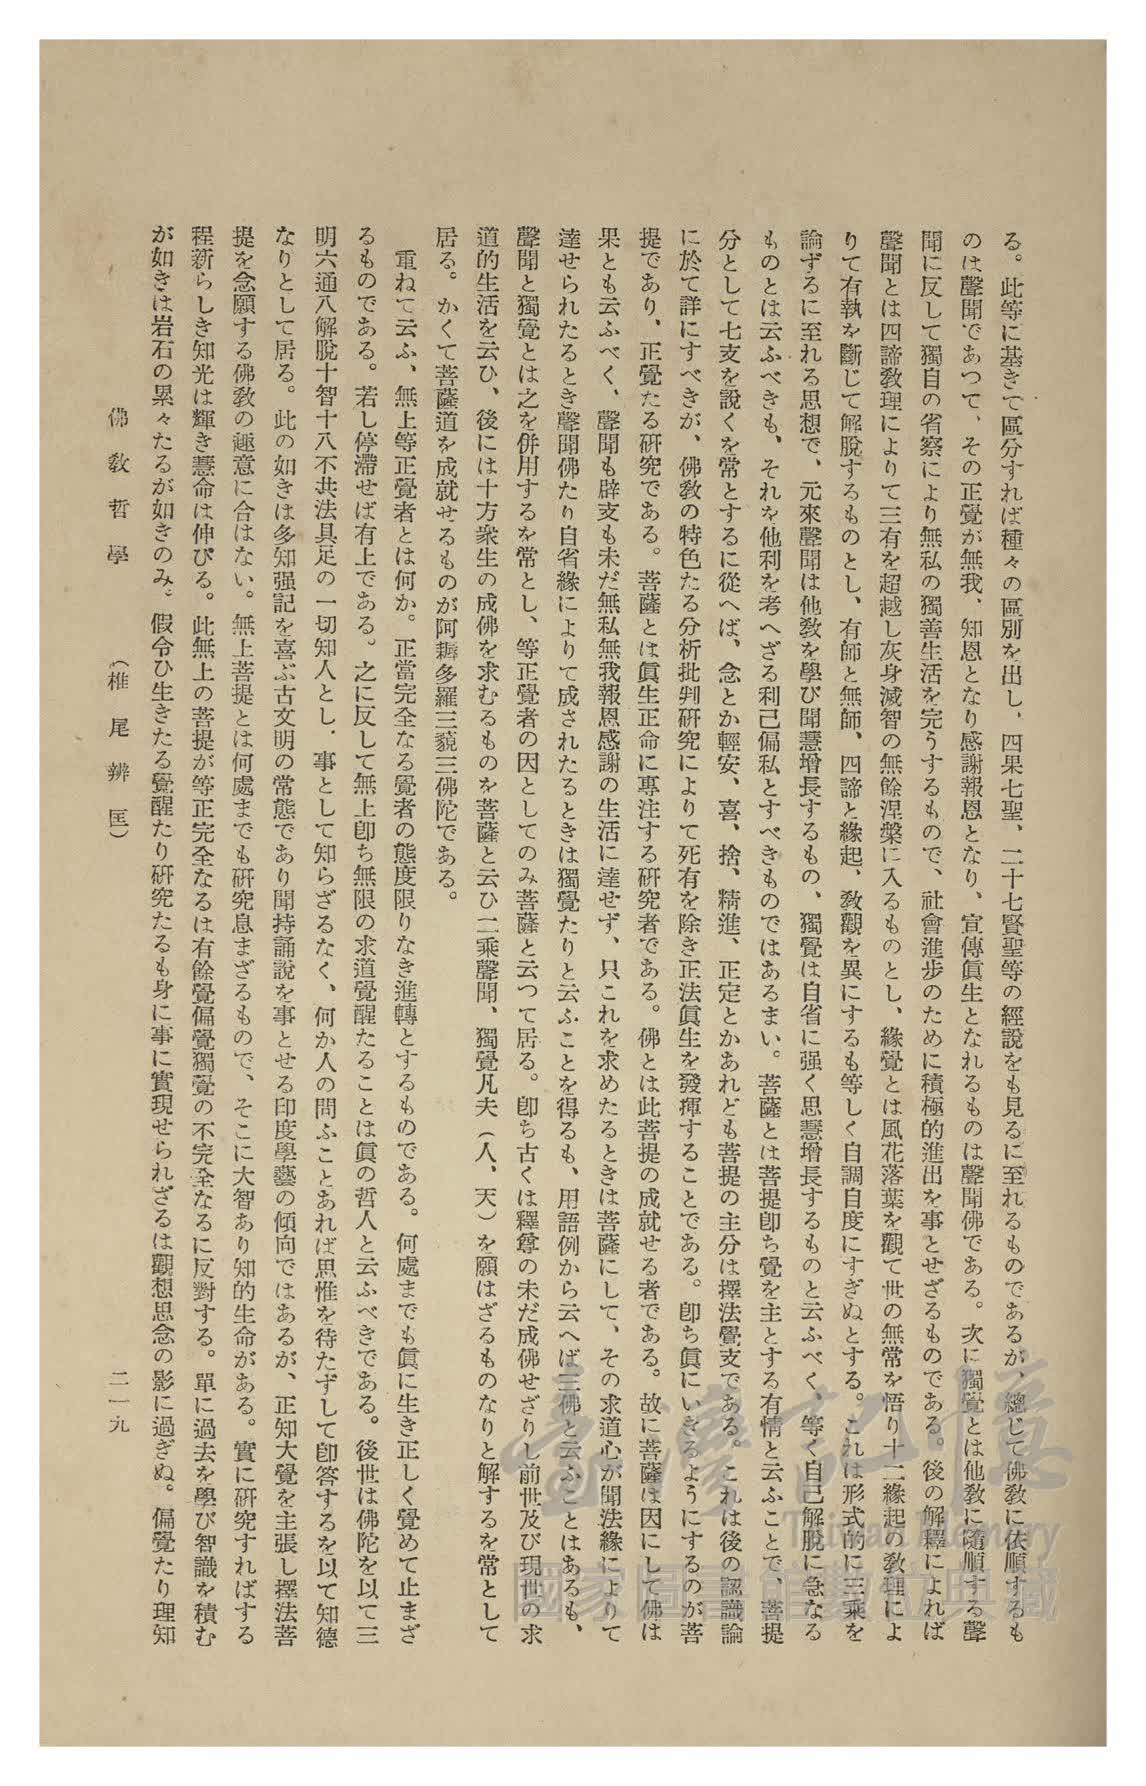 る。此等に基きて區分すれば種々の區別を出し、四果七聖、二十七賢聖等の經說をも見るに至れるものであるが、總じて佛敎に依順するも
のは聲聞であつて、その正覺が無我、知恩となり感謝報恩となり、宣傳眞生となれるものは聲聞佛である。次に獨覺とは他敎に隨順する聲
聞に反して獨自の省察により無私の獨善生活を完うするもので、社會進步のために積極的進出を事とせざるものである。後の解釋によれば
聲聞とは四諦敎理によりて三有を超越し灰身滅智の無餘涅槃に入るものとし、緣覺とは風花落葉を觀て世の無常を悟り十二緣起の敎理によ
りて有執を斷じて解脫するものとし、有師と無師、四諦と緣起、敎觀を異にするも等しく自調自度にすぎぬとする。これは形式的に三乘を
論ずるに至れる思想で、元來聲聞は他敎を學び聞慧增長するもの、獨覺は自省に强く思慧增長するものと云ふべく、等く自己解脫に急なる
ものとは云ふべきも、それを他利を考へざる利己偏私とすべきものではあるまい。菩薩とは菩提卽ち覺を主とする有情と云ふことで、菩提
分として七支を說くを常とするに從へば、念とか輕安、喜、捨、精進、正定とかあれども菩提の主分は擇法覺支である。これは後の認識論
に於て詳にすべきが、佛敎の特色たる分析批判硏究によりて死有を除き正法眞生を發揮することである。卽ち眞にいきるようにするのが菩
提であり、正覺たる硏究である。菩薩とは眞生正命に專注する硏究者である。佛とは此菩提の成就せる者である。故に菩薩は因にして佛は
果とも云ふべく、聲聞も辟支も未だ無私無我報恩感謝の生活に達せず、只これを求めたるときは菩薩にして、その求道心が聞法緣によりて
達せられたるとき聲聞佛たり自省緣によりて成されたるときは獨覺たりと云ふことを得るも、用語例から云へば三佛と云ふことはあるも、
聲聞と獨覺とは之を併用するを常とし、等正覺者の因としてのみ菩薩と云つて居る。卽ち古くは釋尊の未だ成佛せざりし前世及び現世の求
道的生活を云ひ、後には十方衆生の成佛を求むるものを菩薩と云ひ二乘聲聞、獨覺凡夫（人、天）を願はざるものなりと解するを常として
居る。かくて菩薩道を成就せるものが阿耨多羅三藐三佛陀である。
重ねて云ふ、無上等正覺者とは何か。正當完全なる覺者の態度限りなき進轉とするものである。何處までも眞に生き正しく覺めて止まざ
るものである。若し停滯せば有上である。之に反して無上卽ち無限の求道覺醒たることは眞の哲人と云ふべきである。後世は佛陀を以て三
明六通八解脫十智十八不共法具足の一切知人とし、事として知らざるなく、何か人の問ふことあれば思惟を待たずして卽答するを以て知德
なりとして居る。此の如きは多知强記を喜ぶ古文明の常態であり聞持誦說を事とせる印度學藝の傾向ではあるが、正知大覺を主張し擇法菩
提を念願する佛敎の趣意に合はない。無上菩提とは何處までも硏究息まざるもので、そこに大智あり知的生命がある。實に硏究すればする
程新らしき知光は輝き慧命は伸びる。此無上の菩提が等正完全なるは有餘覺偏覺獨覺の不完全なるに反對する。單に過去を學び智識を積む
が如きは岩石の累々たるが如きのみ。假令ひ生きたる覺醒たり硏究たるも身に事に實現せられざるは觀想思念の影に過ぎぬ。偏覺たり理知
佛敎哲學　（椎尾辨匡）　二一九
臺灣記憶
Taiwan Memory
國家圖書館數位典藏